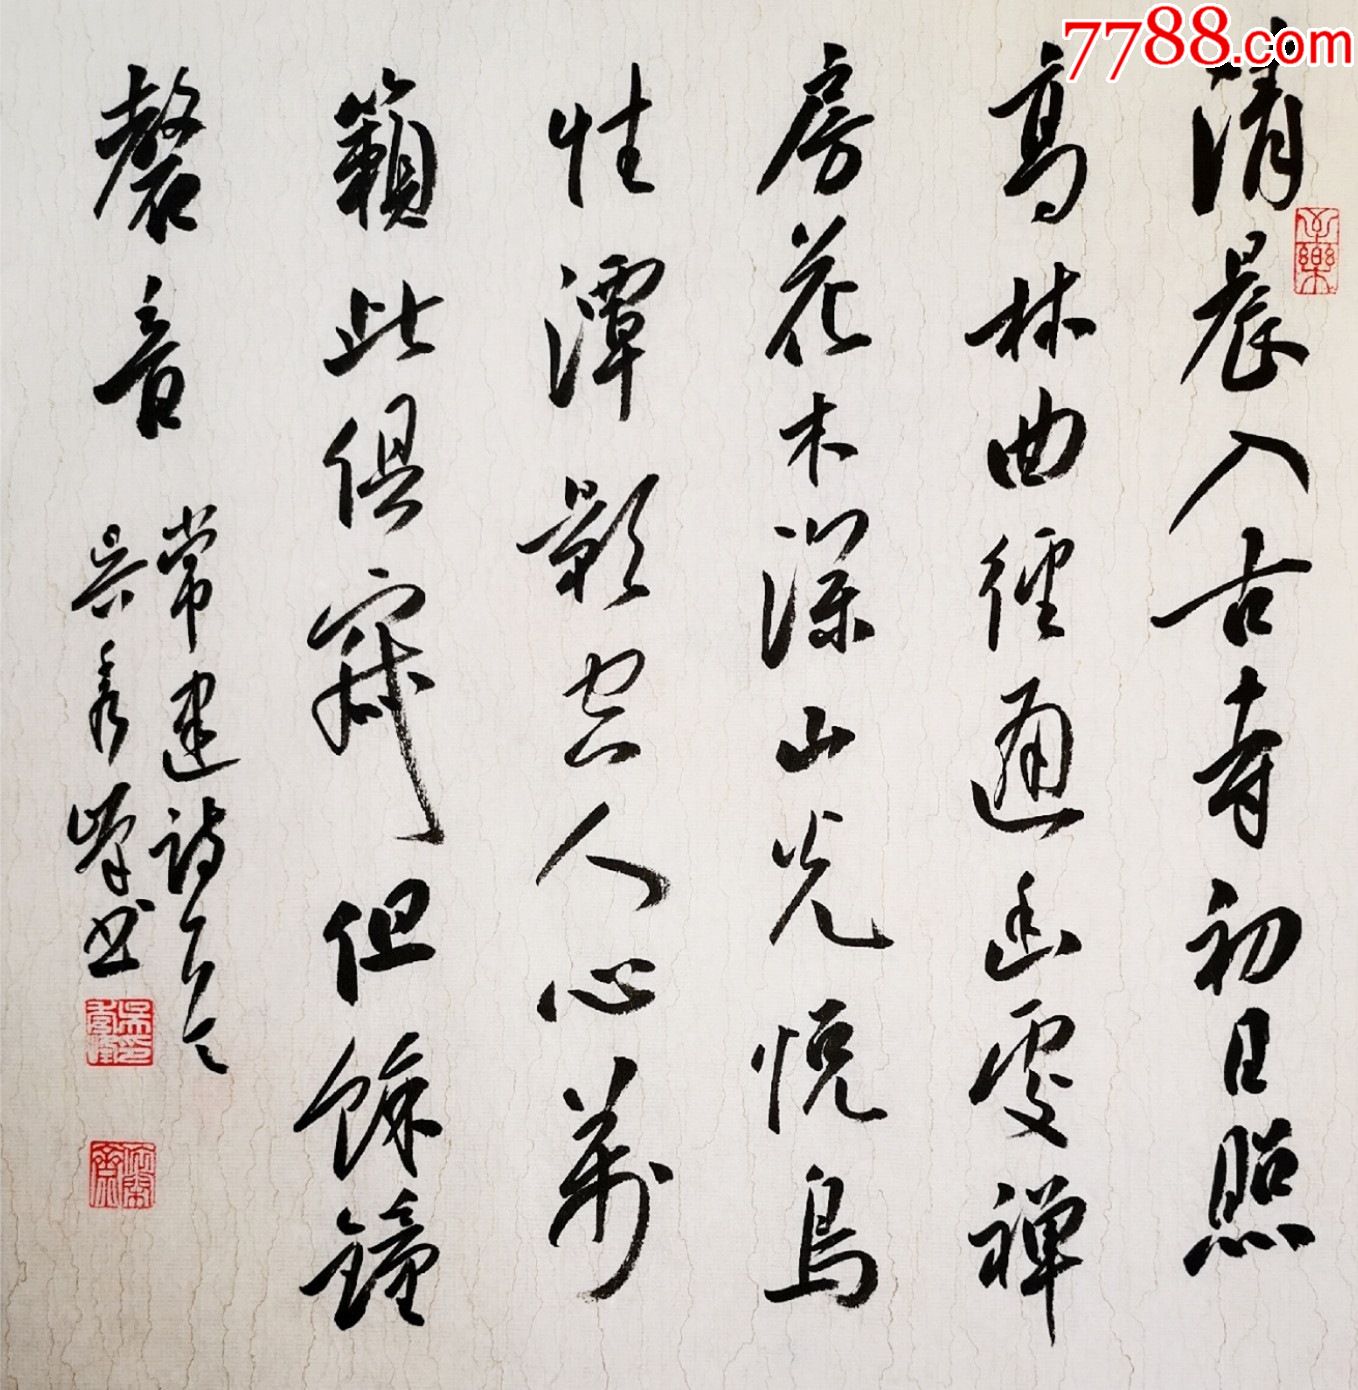 7788.com
清晨入古寺初日照
高林曲徑通幽處禪
房花木深山光悅鳥
性潭影空人心萬
籟此俱寂但餘鐘
磬音
常建詩
吴峰书